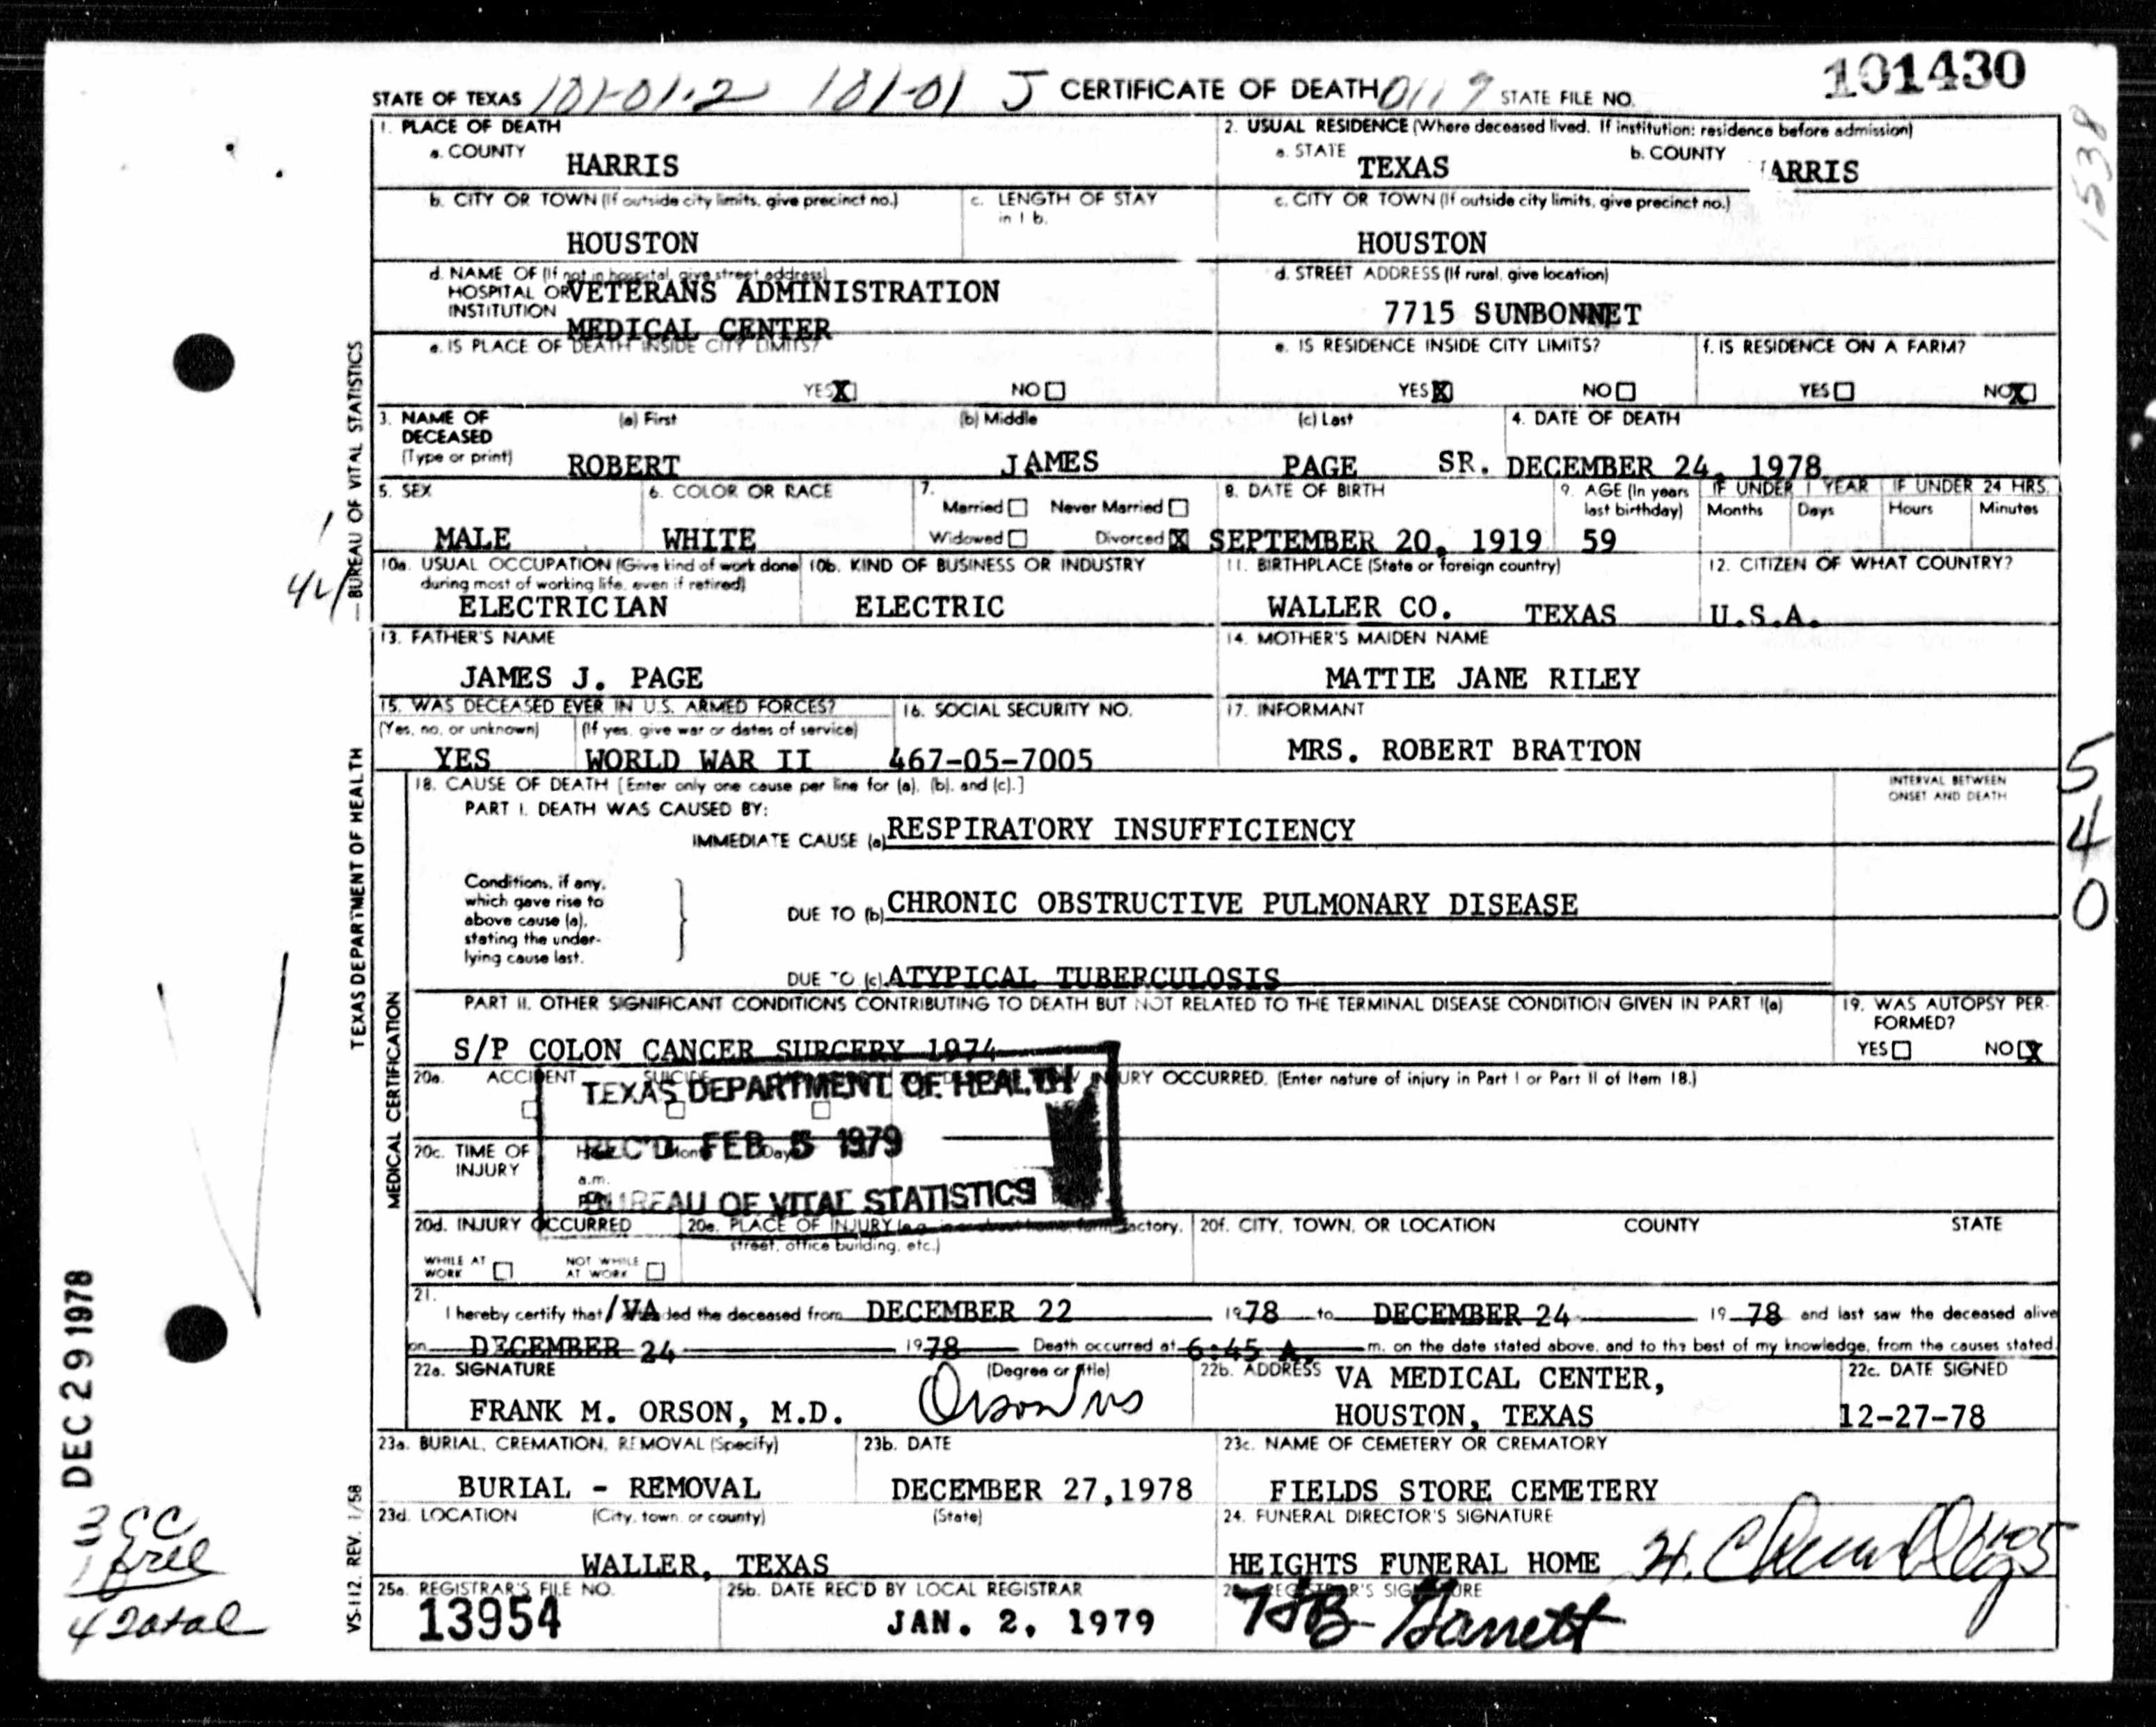 STATE OF TEXAS 101-01-2 101-01 J CERTIFICATE OF DEATH 0119 STATE FILE NO. 101430
1538
1. PLACE OF DEATH
a. COUNTY HARRIS
2. USUAL RESIDENCE (Where deceased lived. If institution: residence before admission)
a. STATE TEXAS b. COUNTY ARRIS
b. CITY OR TOWN (If outside city limits, give precinct no.) HOUSTON
c. LENGTH OF STAY in 1 b.
c. CITY OR TOWN (If outside city limits, give precinct no.) HOUSTON
d. NAME OF (If not in hospital, give street address)
HOSPITAL OR VETERANS ADMINISTRATION
INSTITUTION MEDICAL CENTER
d. STREET ADDRESS (If rural, give location)
7715 SUNBONNET
e. IS PLACE OF DEATH INSIDE CITY LIMITS?
YES X NO
e. IS RESIDENCE INSIDE CITY LIMITS?
YES X NO
f. IS RESIDENCE ON A FARM?
YES NO X
3. NAME OF DECEASED (Type or print)
(a) First (b) Middle (c) Last
ROBERT JAMES PAGE SR.
4. DATE OF DEATH
DECEMBER 24, 1978
5. SEX
MALE
6. COLOR OR RACE
WHITE
7. Married Never Married
Widowed Divorced X
8. DATE OF BIRTH
SEPTEMBER 20, 1919
9. AGE (In years last birthday)
59
IF UNDER 1 YEAR IF UNDER 24 HRS.
Months Days Hours Minutes
10a. USUAL OCCUPATION (Give kind of work done during most of working life, even if retired)
ELECTRICIAN
10b. KIND OF BUSINESS OR INDUSTRY
ELECTRIC
11. BIRTHPLACE (State or foreign country)
WALLER CO. TEXAS
12. CITIZEN OF WHAT COUNTRY?
U.S.A.
13. FATHER'S NAME
JAMES J. PAGE
14. MOTHER'S MAIDEN NAME
MATTIE JANE RILEY
15. WAS DECEASED EVER IN U.S. ARMED FORCES?
(Yes, no, or unknown) (If yes, give war or dates of service)
YES WORLD WAR II
16. SOCIAL SECURITY NO.
467-05-7005
17. INFORMANT
MRS. ROBERT BRATTON
540
18. CAUSE OF DEATH [Enter only one cause per line for (a), (b), and (c).]
INTERVAL BETWEEN ONSET AND DEATH
PART I. DEATH WAS CAUSED BY:
IMMEDIATE CAUSE (a) RESPIRATORY INSUFFICIENCY
Conditions, if any, which gave rise to above cause (a), stating the underlying cause last.
DUE TO (b) CHRONIC OBSTRUCTIVE PULMONARY DISEASE
DUE TO (c) ATYPICAL TUBERCULOSIS
PART II. OTHER SIGNIFICANT CONDITIONS CONTRIBUTING TO DEATH BUT NOT RELATED TO THE TERMINAL DISEASE CONDITION GIVEN IN PART I(a)
S/P COLON CANCER SURGERY 1974
19. WAS AUTOPSY PERFORMED?
YES NO X
20a. ACCIDENT SUICIDE
INJURY OCCURRED. (Enter nature of injury in Part I or Part II of Item 18.)
TEXAS DEPARTMENT OF HEALTH
REC'D FEB 5 1979
BUREAU OF VITAL STATISTICS
20c. TIME OF INJURY
a.m.
20d. INJURY OCCURRED
WHILE AT WORK NOT WHILE AT WORK
20e. PLACE OF INJURY (e.g., in or about home, farm, factory, street, office building, etc.)
20f. CITY, TOWN, OR LOCATION COUNTY STATE
21. I hereby certify that /VA ded the deceased from DECEMBER 22 1978 to DECEMBER 24 19 78 and last saw the deceased alive
on DECEMBER 24 1978 Death occurred at 6:45 A. m. on the date stated above, and to the best of my knowledge, from the causes stated.
22a. SIGNATURE (Degree or title)
FRANK M. ORSON, M.D. Orson MD
22b. ADDRESS VA MEDICAL CENTER,
HOUSTON, TEXAS
22c. DATE SIGNED
12-27-78
23a. BURIAL, CREMATION, REMOVAL (Specify)
BURIAL - REMOVAL
23b. DATE
DECEMBER 27,1978
23c. NAME OF CEMETERY OR CREMATORY
FIELDS STORE CEMETERY
23d. LOCATION (City, town, or county) (State)
WALLER, TEXAS
24. FUNERAL DIRECTOR'S SIGNATURE
HEIGHTS FUNERAL HOME
25a. REGISTRAR'S FILE NO.
13954
25b. DATE REC'D BY LOCAL REGISTRAR
JAN. 2, 1979
REGISTRAR'S SIGNATURE
Garrett
BUREAU OF VITAL STATISTICS
TEXAS DEPARTMENT OF HEALTH
MEDICAL CERTIFICATION
VS-112, REV. 1/58
DEC 29 1978
3 CC
1 free
4 Total